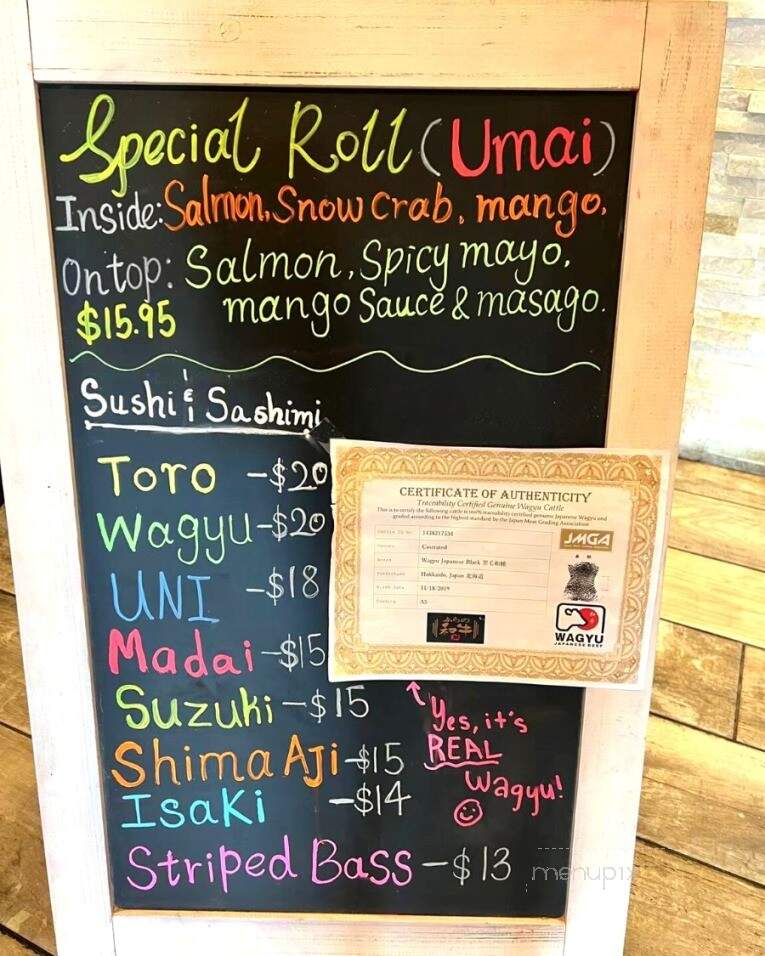 Special Roll (Umai)
Inside: Salmon, Snow Crab, mango,
On top: Salmon, Spicy mayo,
mango Sauce & masago.
$15.95
Sushi & Sashimi
Toro -$20
Wagyu -$20
UNI -$18
Madai -$15
Suzuki -$15
Shima Aji -$15
Isaki -$14
Striped Bass -$13
CERTIFICATE OF AUTHENTICITY
Traceability Certified Genuine Wagyu Cattle
This is to certify the following cattle is 100% traceability certified genuine Japanese Wagyu and
graded according to the highest standard by the Japan Meat Grading Association
Castrated
Wagyu Japanese Black 黒毛和種
Hokkaido, Japan 北海道
11/18/2019
A5
JMGA
和牛
WAGYU
JAPANESE BEEF
Yes, it's
REAL
Wagyu!
menupix